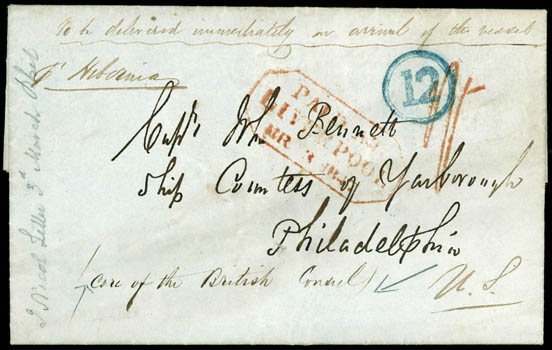 To be delivered immediately on arrival of the vessel
Pr Hibernia
12
PAID AT
LIVERPOOL
MR 3
Captn Wm Bennett
Ship Countess of Yarborough
Philadelphia
(care of the British Consul)
U.S.
Nicol Liller 3d March